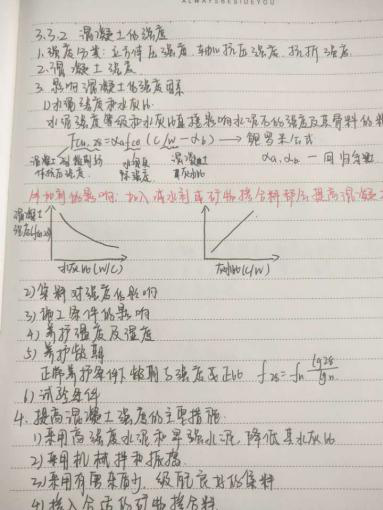 ALWAYSBESIDEYOU
3.3.2 混凝土的强度
1. 强度分类:立方体压强度、轴心抗压强度、抗折强度
2. 混凝土强度
3. 影响混凝土的强度因素
1) 水泥强度和水灰比
水泥强度等级和水灰比直接影响水泥石的强度及其骨料的粘
fcu,28=αafce(C/W-αb) → 鲍罗米公式
混凝土 龄期的 水泥 混凝土 αa,αb — 回归系数
抗压强度 强度 灰水比
外加剂的影响:加入减水剂或矿物掺合料 提高混凝土
混凝土
强度
水灰比(W/C) 灰水比(C/W)
2) 集料对强度的影响
3) 施工条件的影响
4) 养护温度及湿度
5) 养护龄期
正常养护条件下龄期与强度成正比 f28=fn lg28/lgn
6) 试验条件
4. 提高混凝土强度的主要措施
1) 采用高强度水泥和早强水泥,降低其水灰比
2) 采用机械拌和振捣
3) 采用有害杂质少、级配良好的集料
4) 掺入合适的矿物掺合料